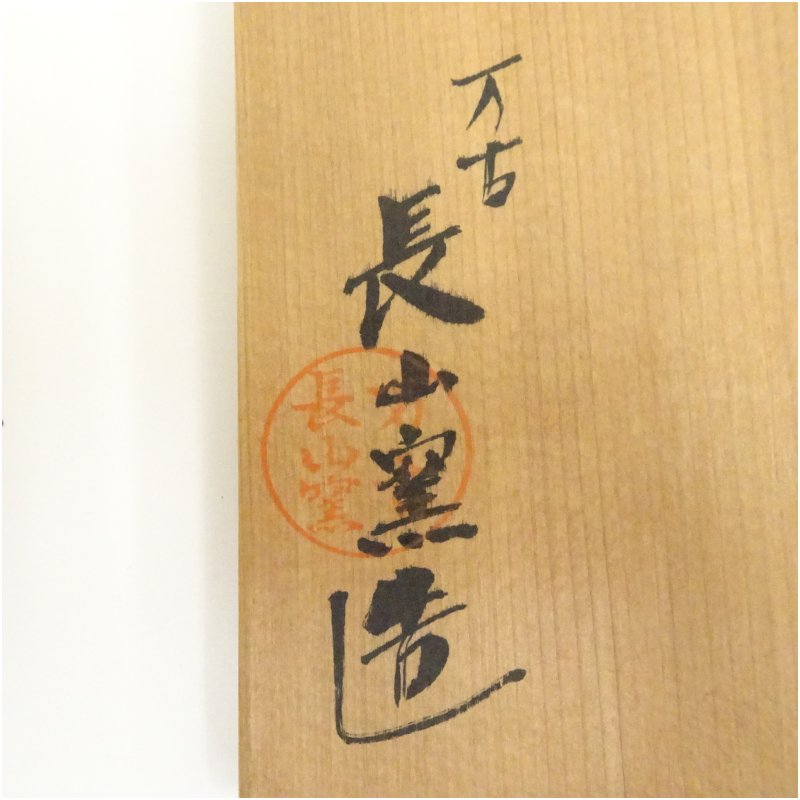 万古
長山窯造
長山窯